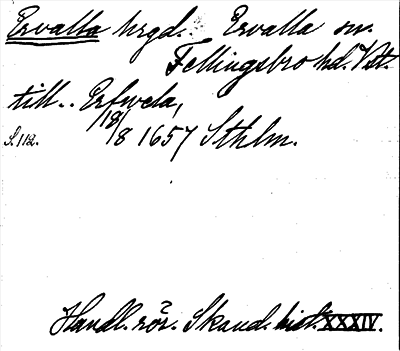 Ervalla hrgd. Ervalla sn.
Fellingsbro hd. Vstm.
till.. Erfwela,
S. 112. 18/8 1657 Sthlm.
Handl. rör. Skand. hist. XXXIV.